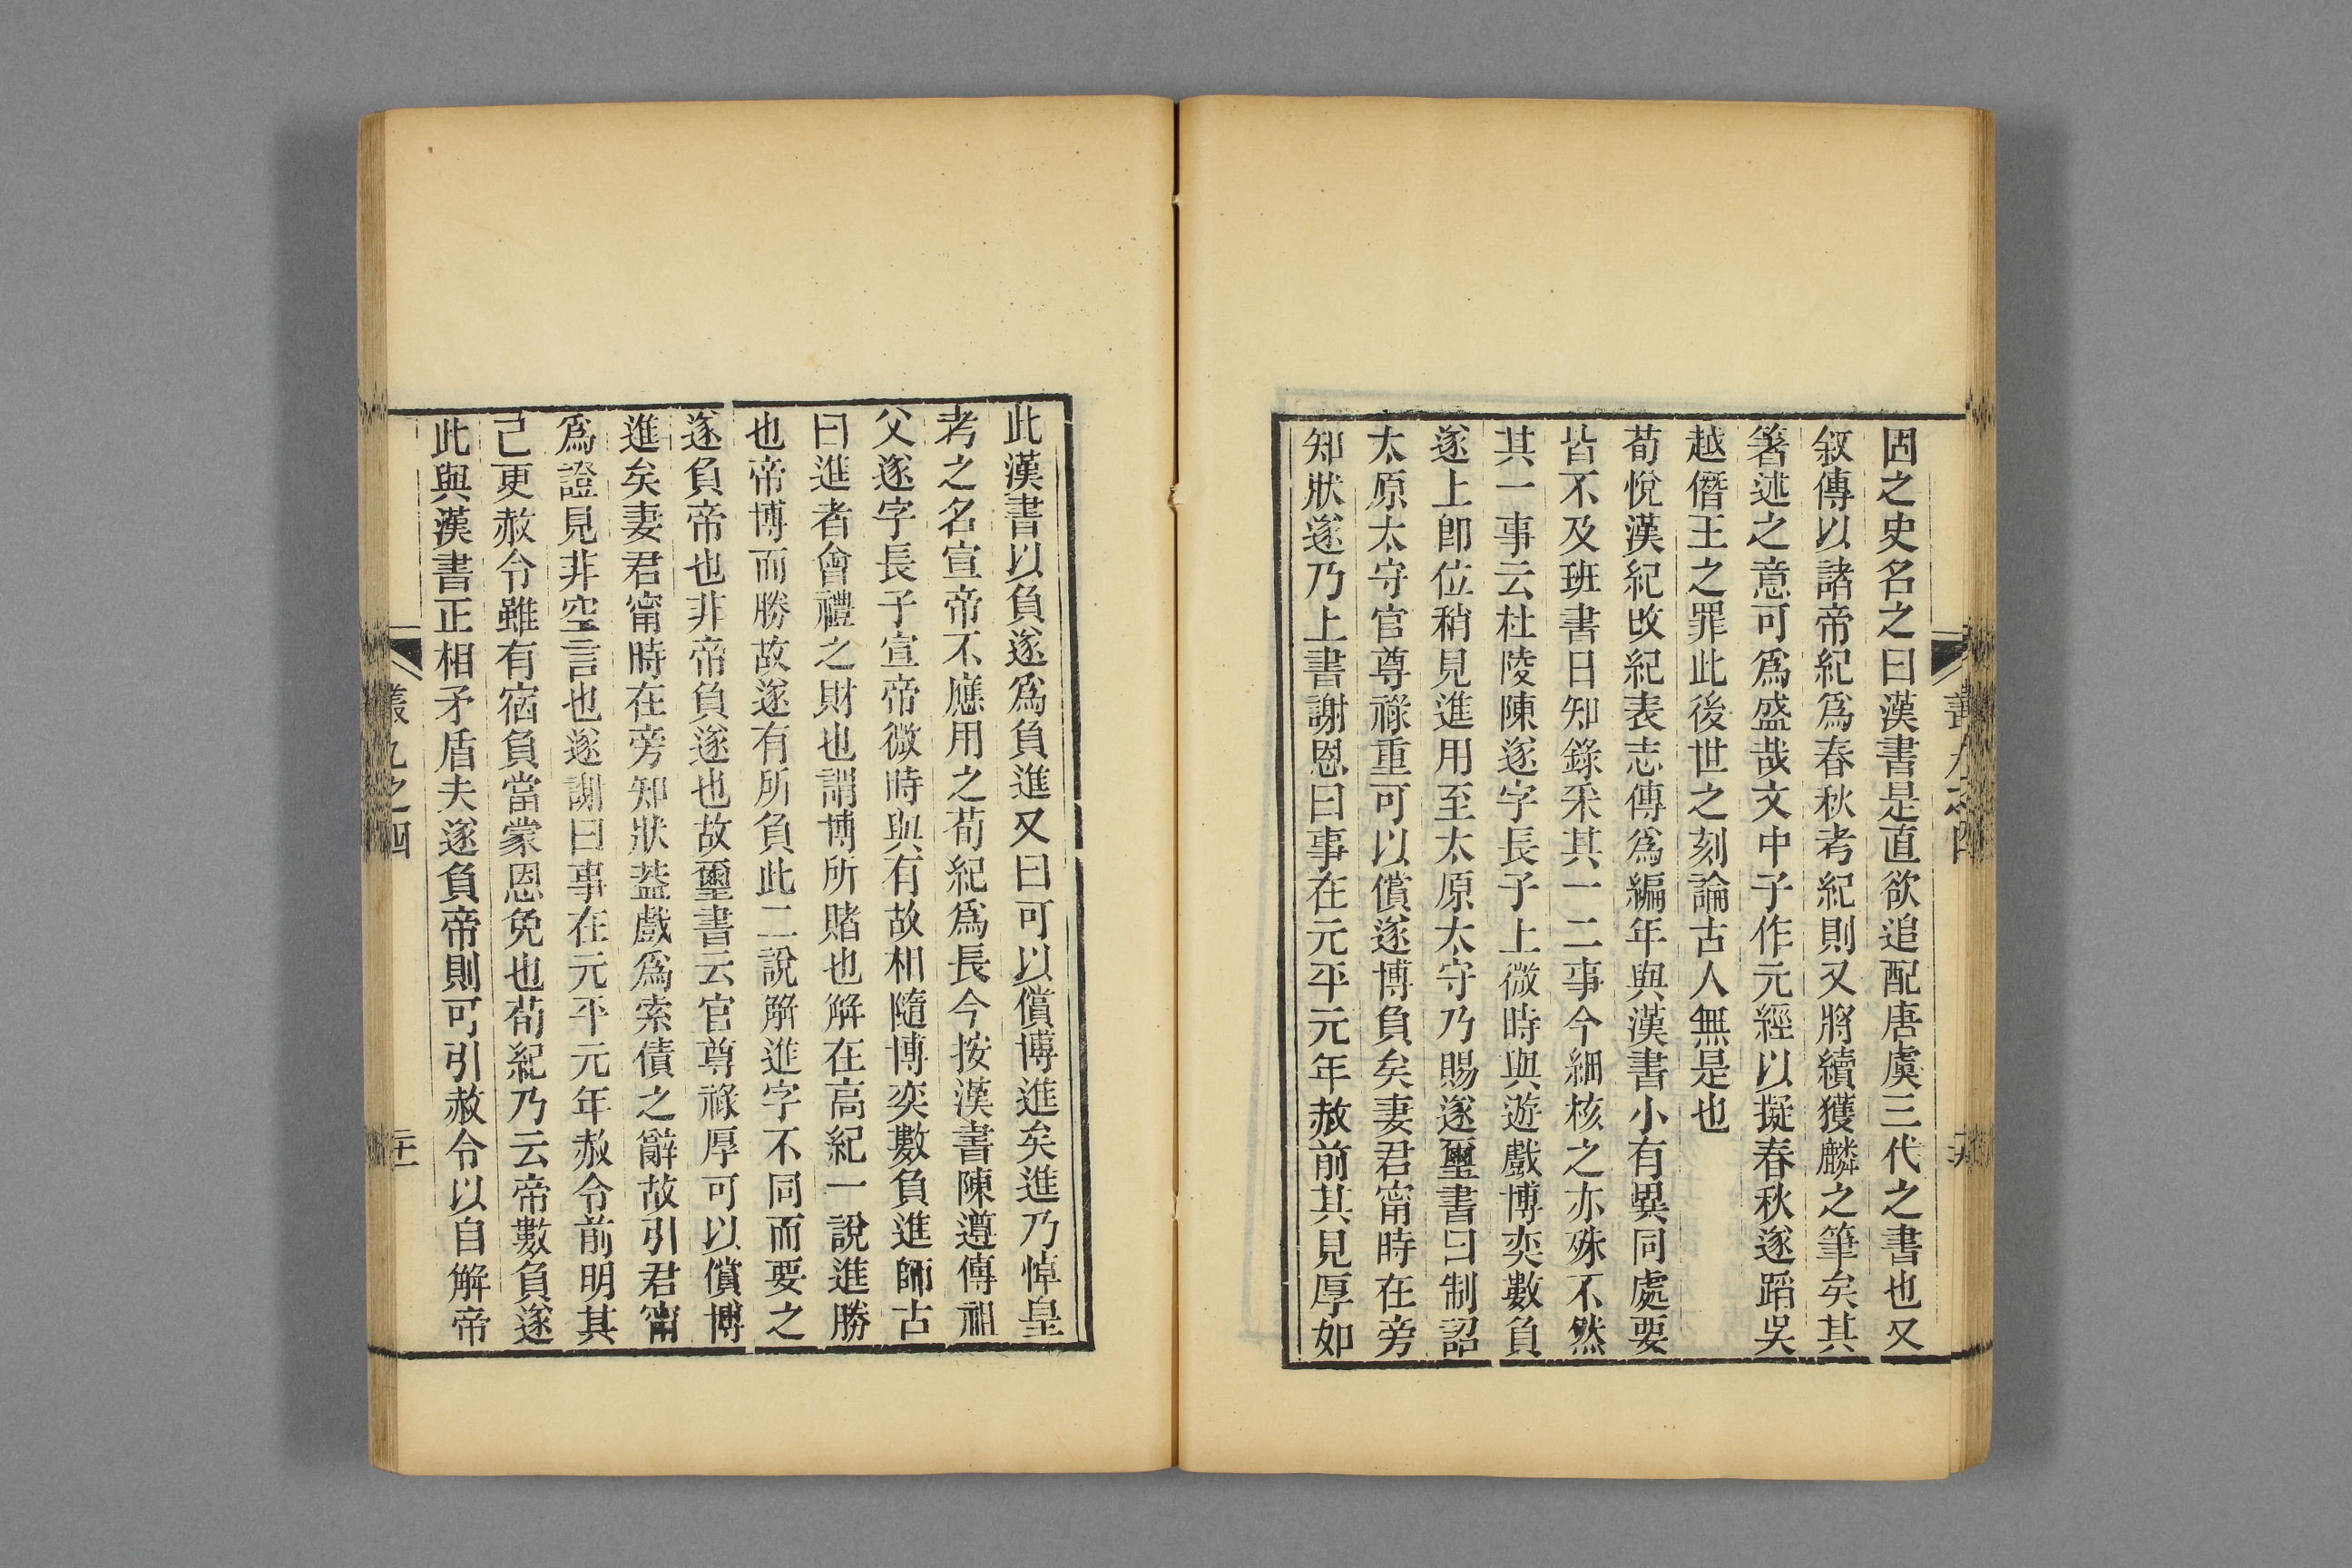 固之史名之曰漢書是直欲追配唐虞三代之書也又
敘傳以諸帝紀爲春秋考紀則又將續獲麟之筆矣其
箸述之意可爲盛哉文中子作元經以擬春秋遂蹈吳
越僭王之罪此後世之刻論古人無是也
荀悅漢紀改紀表志傳爲編年與漢書小有異同處要
皆不及班書日知錄釆其一二事今細核之亦殊不然
其一事云杜陵陳遂字長子上微時與遊戲博奕數負
遂上卽位稍見進用至太原太守乃賜遂璽書曰制詔
太原太守官尊祿重可以償遂博負矣妻君甯時在旁
知狀遂乃上書謝恩曰事在元平元年赦前其見厚如
此漢書以負遂爲負進又曰可以償博進矣進乃悼皇
考之名宣帝不應用之荀紀爲長今按漢書陳遵傳祖
父遂字長子宣帝微時與有故相隨博奕數負進師古
曰進者會禮之財也謂博所賭也解在高紀一說進勝
也帝博而勝故遂有所負此二說解進字不同而要之
遂負帝也非帝負遂也故璽書云官尊祿厚可以償博
進矣妻君甯時在旁知狀葢戲爲索債之辭故引君甯
爲證見非空言也遂謝曰事在元平元年赦令前明其
己更赦令雖有宿負當蒙恩免也荀紀乃云帝數負遂
此與漢書正相矛盾夫遂負帝則可引赦令以自解帝
叢九之四